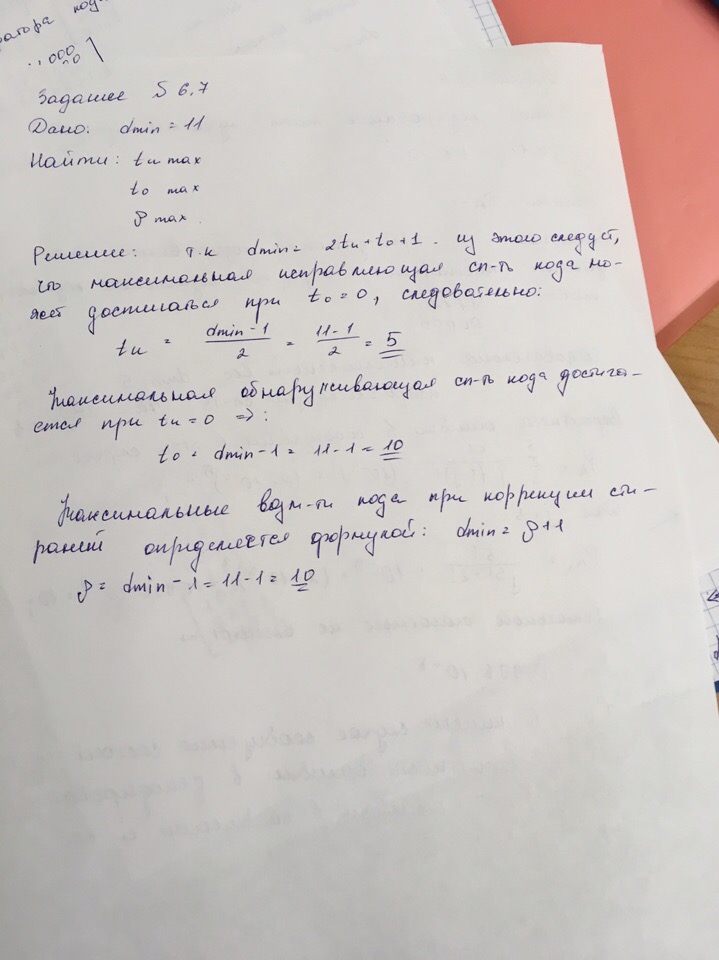 ратора кода
..,000
Задание № 6.7
Дано: dmin = 11
Найти: tи max
to max
ρ max.
Решение: т.к dmin = 2tи + to + 1. из этого следует,
что максимальная исправляющая сп-ть кода мо-
жет достигаться при to = 0, следовательно:
tи = dmin - 1 / 2 = 11 - 1 / 2 = 5
Максимальная обнаруживающая сп-ть кода достига-
ется при tи = 0 =>:
to = dmin - 1 = 11 - 1 = 10
Максимальные возм-ти кода при коррекции сти-
раний определяется формулой: dmin = ρ + 1
ρ = dmin - 1 = 11 - 1 = 10